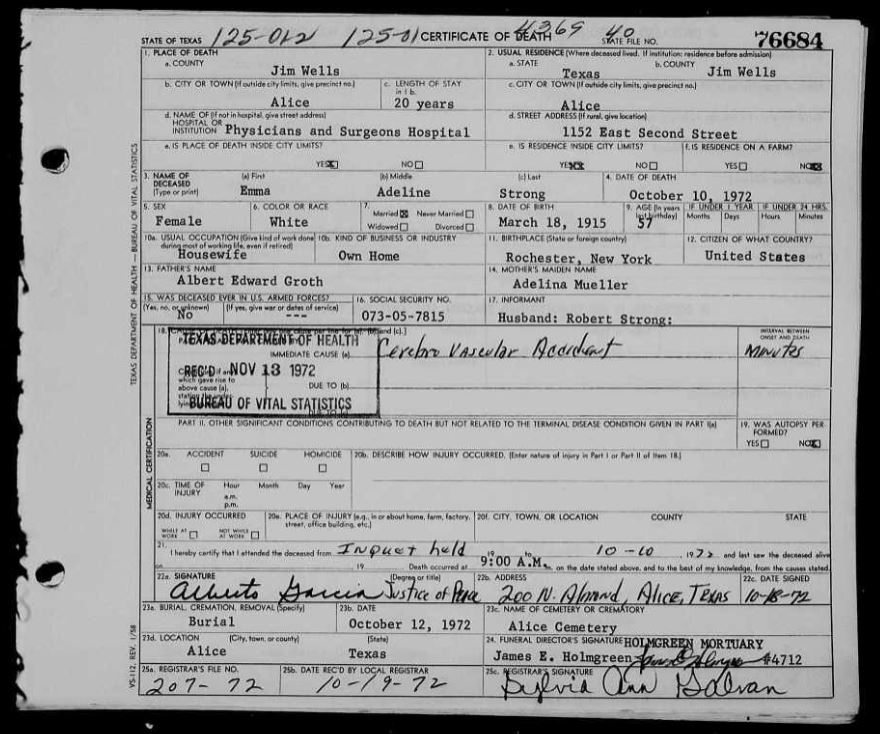 STATE OF TEXAS 125-012 125-01 CERTIFICATE OF DEATH 4369 40 STATE FILE NO. 76684
1. PLACE OF DEATH 2. USUAL RESIDENCE (Where deceased lived. If institution: residence before admission)
a. COUNTY Jim Wells a. STATE Texas b. COUNTY Jim Wells
b. CITY OR TOWN (If outside city limits, give precinct no.) Alice c. LENGTH OF STAY in 1 b. 20 years c. CITY OR TOWN (If outside city limits, give precinct no.) Alice
d. NAME OF (If not in hospital, give street address) HOSPITAL OR INSTITUTION Physicians and Surgeons Hospital d. STREET ADDRESS (If rural, give location) 1152 East Second Street
e. IS PLACE OF DEATH INSIDE CITY LIMITS? e. IS RESIDENCE INSIDE CITY LIMITS? f. IS RESIDENCE ON A FARM?
YES☒ NO☐ YES☒ NO☐ YES☐ NO☒
3. NAME OF DECEASED (Type or print) (a) First Emma (b) Middle Adeline (c) Last Strong 4. DATE OF DEATH October 10, 1972
5. SEX Female 6. COLOR OR RACE White 7. Married☒ Never Married☐ Widowed☐ Divorced☐ 8. DATE OF BIRTH March 18, 1915 9. AGE (In years last birthday) 57 IF UNDER 1 YEAR Months Days IF UNDER 24 HRS. Hours Minutes
10a. USUAL OCCUPATION (Give kind of work done during most of working life, even if retired) Housewife 10b. KIND OF BUSINESS OR INDUSTRY Own Home 11. BIRTHPLACE (State or foreign country) Rochester, New York 12. CITIZEN OF WHAT COUNTRY? United States
13. FATHER'S NAME Albert Edward Groth 14. MOTHER'S MAIDEN NAME Adelina Mueller
15. WAS DECEASED EVER IN U.S. ARMED FORCES? (Yes, no, or unknown) No (If yes, give war or dates of service) --- 16. SOCIAL SECURITY NO. 073-05-7815 17. INFORMANT Husband: Robert Strong:
18. and (c).] INTERVAL BETWEEN ONSET AND DEATH
TEXAS DEPARTMENT OF HEALTH
IMMEDIATE CAUSE (a) Cerebro Vascular Accident Minutes
REC'D NOV 13 1972
which gave rise to above cause (a), DUE TO (b)
BUREAU OF VITAL STATISTICS
PART II. OTHER SIGNIFICANT CONDITIONS CONTRIBUTING TO DEATH BUT NOT RELATED TO THE TERMINAL DISEASE CONDITION GIVEN IN PART I(a) 19. WAS AUTOPSY PERFORMED?
YES☐ NO☒
20a. ACCIDENT ☐ SUICIDE ☐ HOMICIDE ☐ 20b. DESCRIBE HOW INJURY OCCURRED. (Enter nature of injury in Part I or Part II of Item 18.)
20c. TIME OF INJURY Hour a.m. p.m. Month Day Year
20d. INJURY OCCURRED WHILE AT WORK ☐ NOT WHILE AT WORK ☐ 20e. PLACE OF INJURY (e.g., in or about home, farm, factory, street, office building, etc.) 20f. CITY, TOWN, OR LOCATION COUNTY STATE
21. I hereby certify that I attended the deceased from Inquet held 19 to 10-10 1972 and last saw the deceased alive
on 19 Death occurred at 9:00 A.M. on the date stated above, and to the best of my knowledge, from the causes stated.
22a. SIGNATURE Alberto Garcia (Degree or title) Justice of Peace 22b. ADDRESS 200 N. Almond, Alice, Texas 22c. DATE SIGNED 10-18-72
23a. BURIAL, CREMATION, REMOVAL (Specify) Burial 23b. DATE October 12, 1972 23c. NAME OF CEMETERY OR CREMATORY Alice Cemetery
23d. LOCATION (City, town, or county) Alice (State) Texas 24. FUNERAL DIRECTOR'S SIGNATURE HOLMGREEN MORTUARY James E. Holmgreen James E Holmgreen #4712
25a. REGISTRAR'S FILE NO. 207-72 25b. DATE REC'D BY LOCAL REGISTRAR 10-19-72 25c. REGISTRAR'S SIGNATURE Sylvia Ann Galvan
TEXAS DEPARTMENT OF HEALTH — BUREAU OF VITAL STATISTICS
MEDICAL CERTIFICATION
VS-112, REV. 1/58